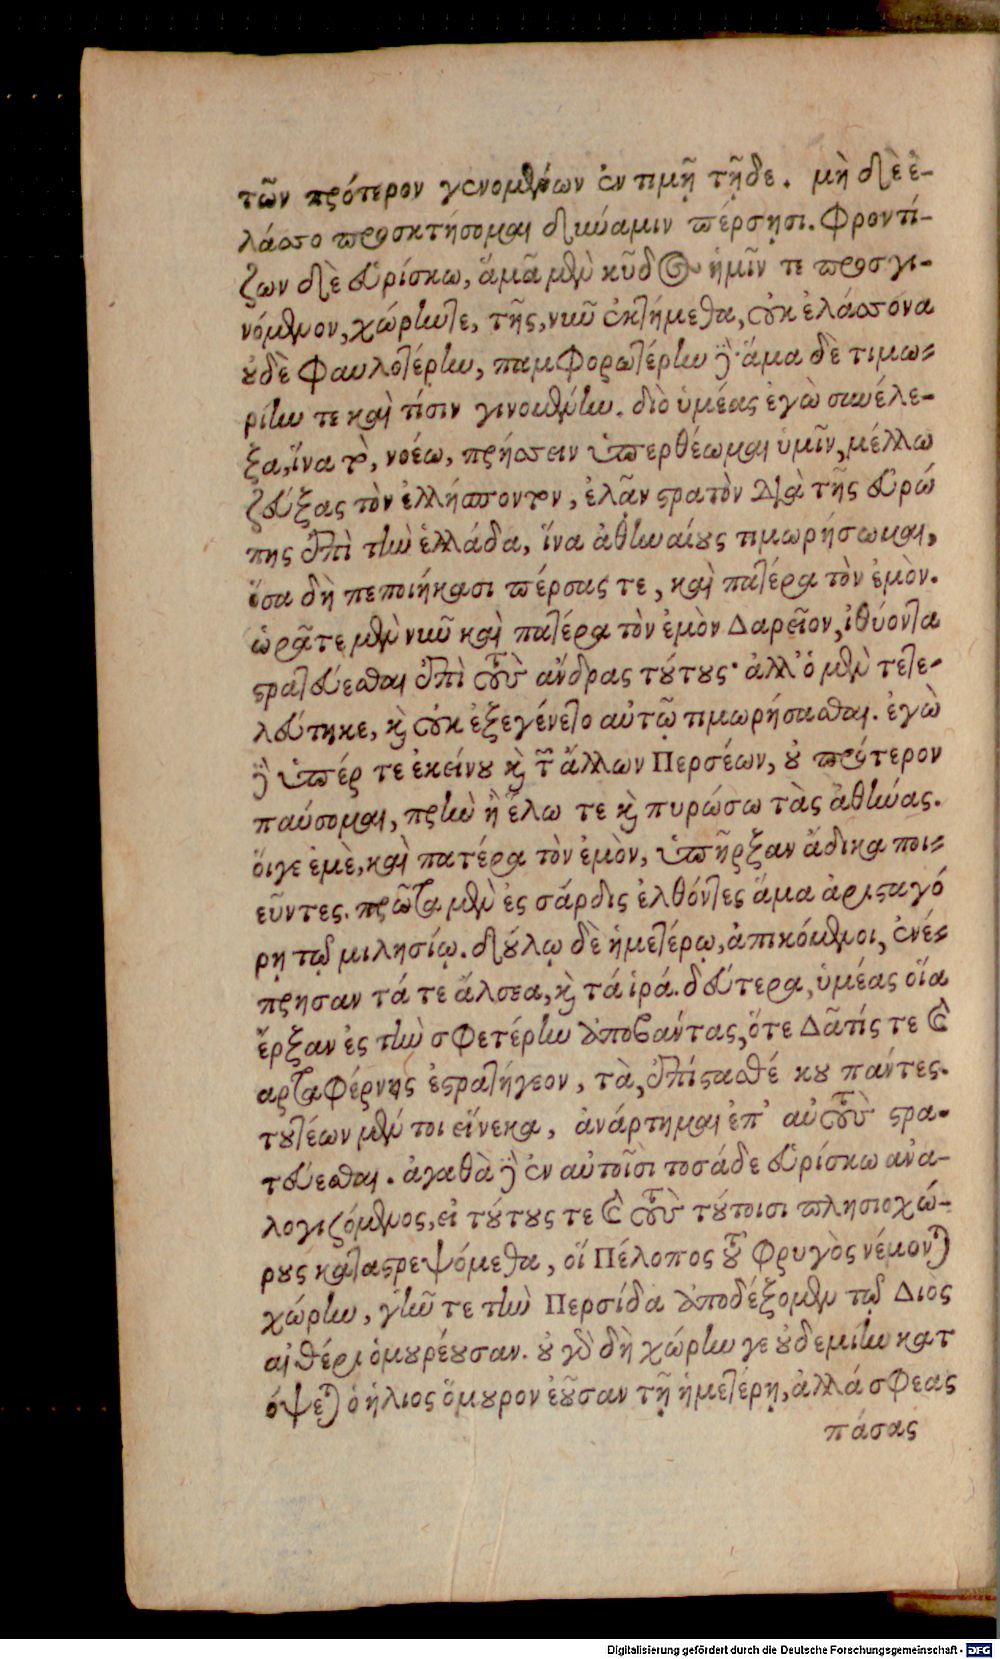 τῶν πρότερον γενομένων ἐν τιμῇ τῇδε. μὴ δὲ ἐ-
λάσσω προσκτήσομαι δύναμιν πέρσῃσι. Φροντί-
ζων δὲ εὑρίσκω, ἅμα μὲν κῦδος ἡμῖν τε προσγι-
νόμενον, χώρην τε, τῆς, νῦν ἐκτήμεθα, οὐκ ἐλάσσονα
οὐδὲ Φαυλοτέρην, παμΦορωτέρην δέ· ἅμα δὲ τιμω-
ρίην τε καὶ τίσιν γινομένην. διὸ ὑμέας ἐγὼ συνέλε-
ξα, ἵνα τὸ, νοέω, πρήσσειν ὑπερθέωμαι ὑμῖν, μέλλω
ζεύξας τὸν ἑλλήσποντον, ἐλᾶν στρατὸν διὰ τῆς εὐρώ
πης ἐπὶ τὴν ἑλλάδα, ἵνα ἀθηναίους τιμωρήσωμαι,
ὅσα δὴ πεποιήκασι πέρσας τε, καὶ πατέρα τὸν ἐμὸν.
ὡρᾶτε μὲν νῦν καὶ πατέρα τὸν ἐμὸν Δαρεῖον, ἰθύοντα
στρατεύεσθαι ἐπὶ τοὺς ἄνδρας τούτους· ἀλλ' ὁ μὲν τετε-
λεύτηκε, καὶ οὐκ ἐξεγένετο αὐτῷ τιμωρήσασθαι. ἐγὼ
δὲ ὑπέρ τε ἐκείνου καὶ τῶν ἄλλων Περσέων, οὐ πρότερον
παύσομαι, πρὶν ἢ ἕλω τε καὶ πυρώσω τὰς ἀθήνας.
οἵγε ἐμὲ, καὶ πατέρα τὸν ἐμὸν, ὑπῆρξαν ἄδικα ποι-
εῦντες. πρῶτα μὲν ἐς σάρδις ἐλθόντες ἅμα ἀρισταγό
ρῃ τῷ μιλησίῳ. δούλῳ δὲ ἡμετέρῳ, ἀπικόμενοι, ἐνέ-
πρησαν τά τε ἄλσεα, καὶ τὰ ἱρά. δεύτερα, ὑμέας οἵα
ἔρξαν ἐς τὴν σΦετέρην ἀποβάντας, ὅτε Δᾶτίς τε καὶ
αρταΦέρνης ἐστρατήγεον, τὰ, ἐπίστασθέ κου πάντες.
τουτέων μέν τοι εἵνεκα, ἀνάρτημαι ἐπ' αὐτοὺς στρα-
τεύεσθαι. ἀγαθὰ δὲ ἐν αὐτοῖσι τοσάδε εὑρίσκω ἀνα-
λογιζόμενος, εἰ τούτους τε καὶ τοὺς τούτοισι πλησιοχώ-
ρους καταστρεψόμεθα, οἳ Πέλοπος τοῦ Φρυγὸς νέμονται
χώρην, γῆν τε τὴν Περσίδα ἀποδέξομεν τῷ Διὸς
αἰθέρι ὁμουρέουσαν. οὐ γὰρ δὴ χώρην γε οὐδεμίην κατ
όψεται ὁ ἥλιος ὅμουρον ἐοῦσαν τῇ ἡμετέρῃ, ἀλλά σΦεας
πάσας
Digitalisierung gefördert durch die Deutsche Forschungsgemeinschaft - DFG